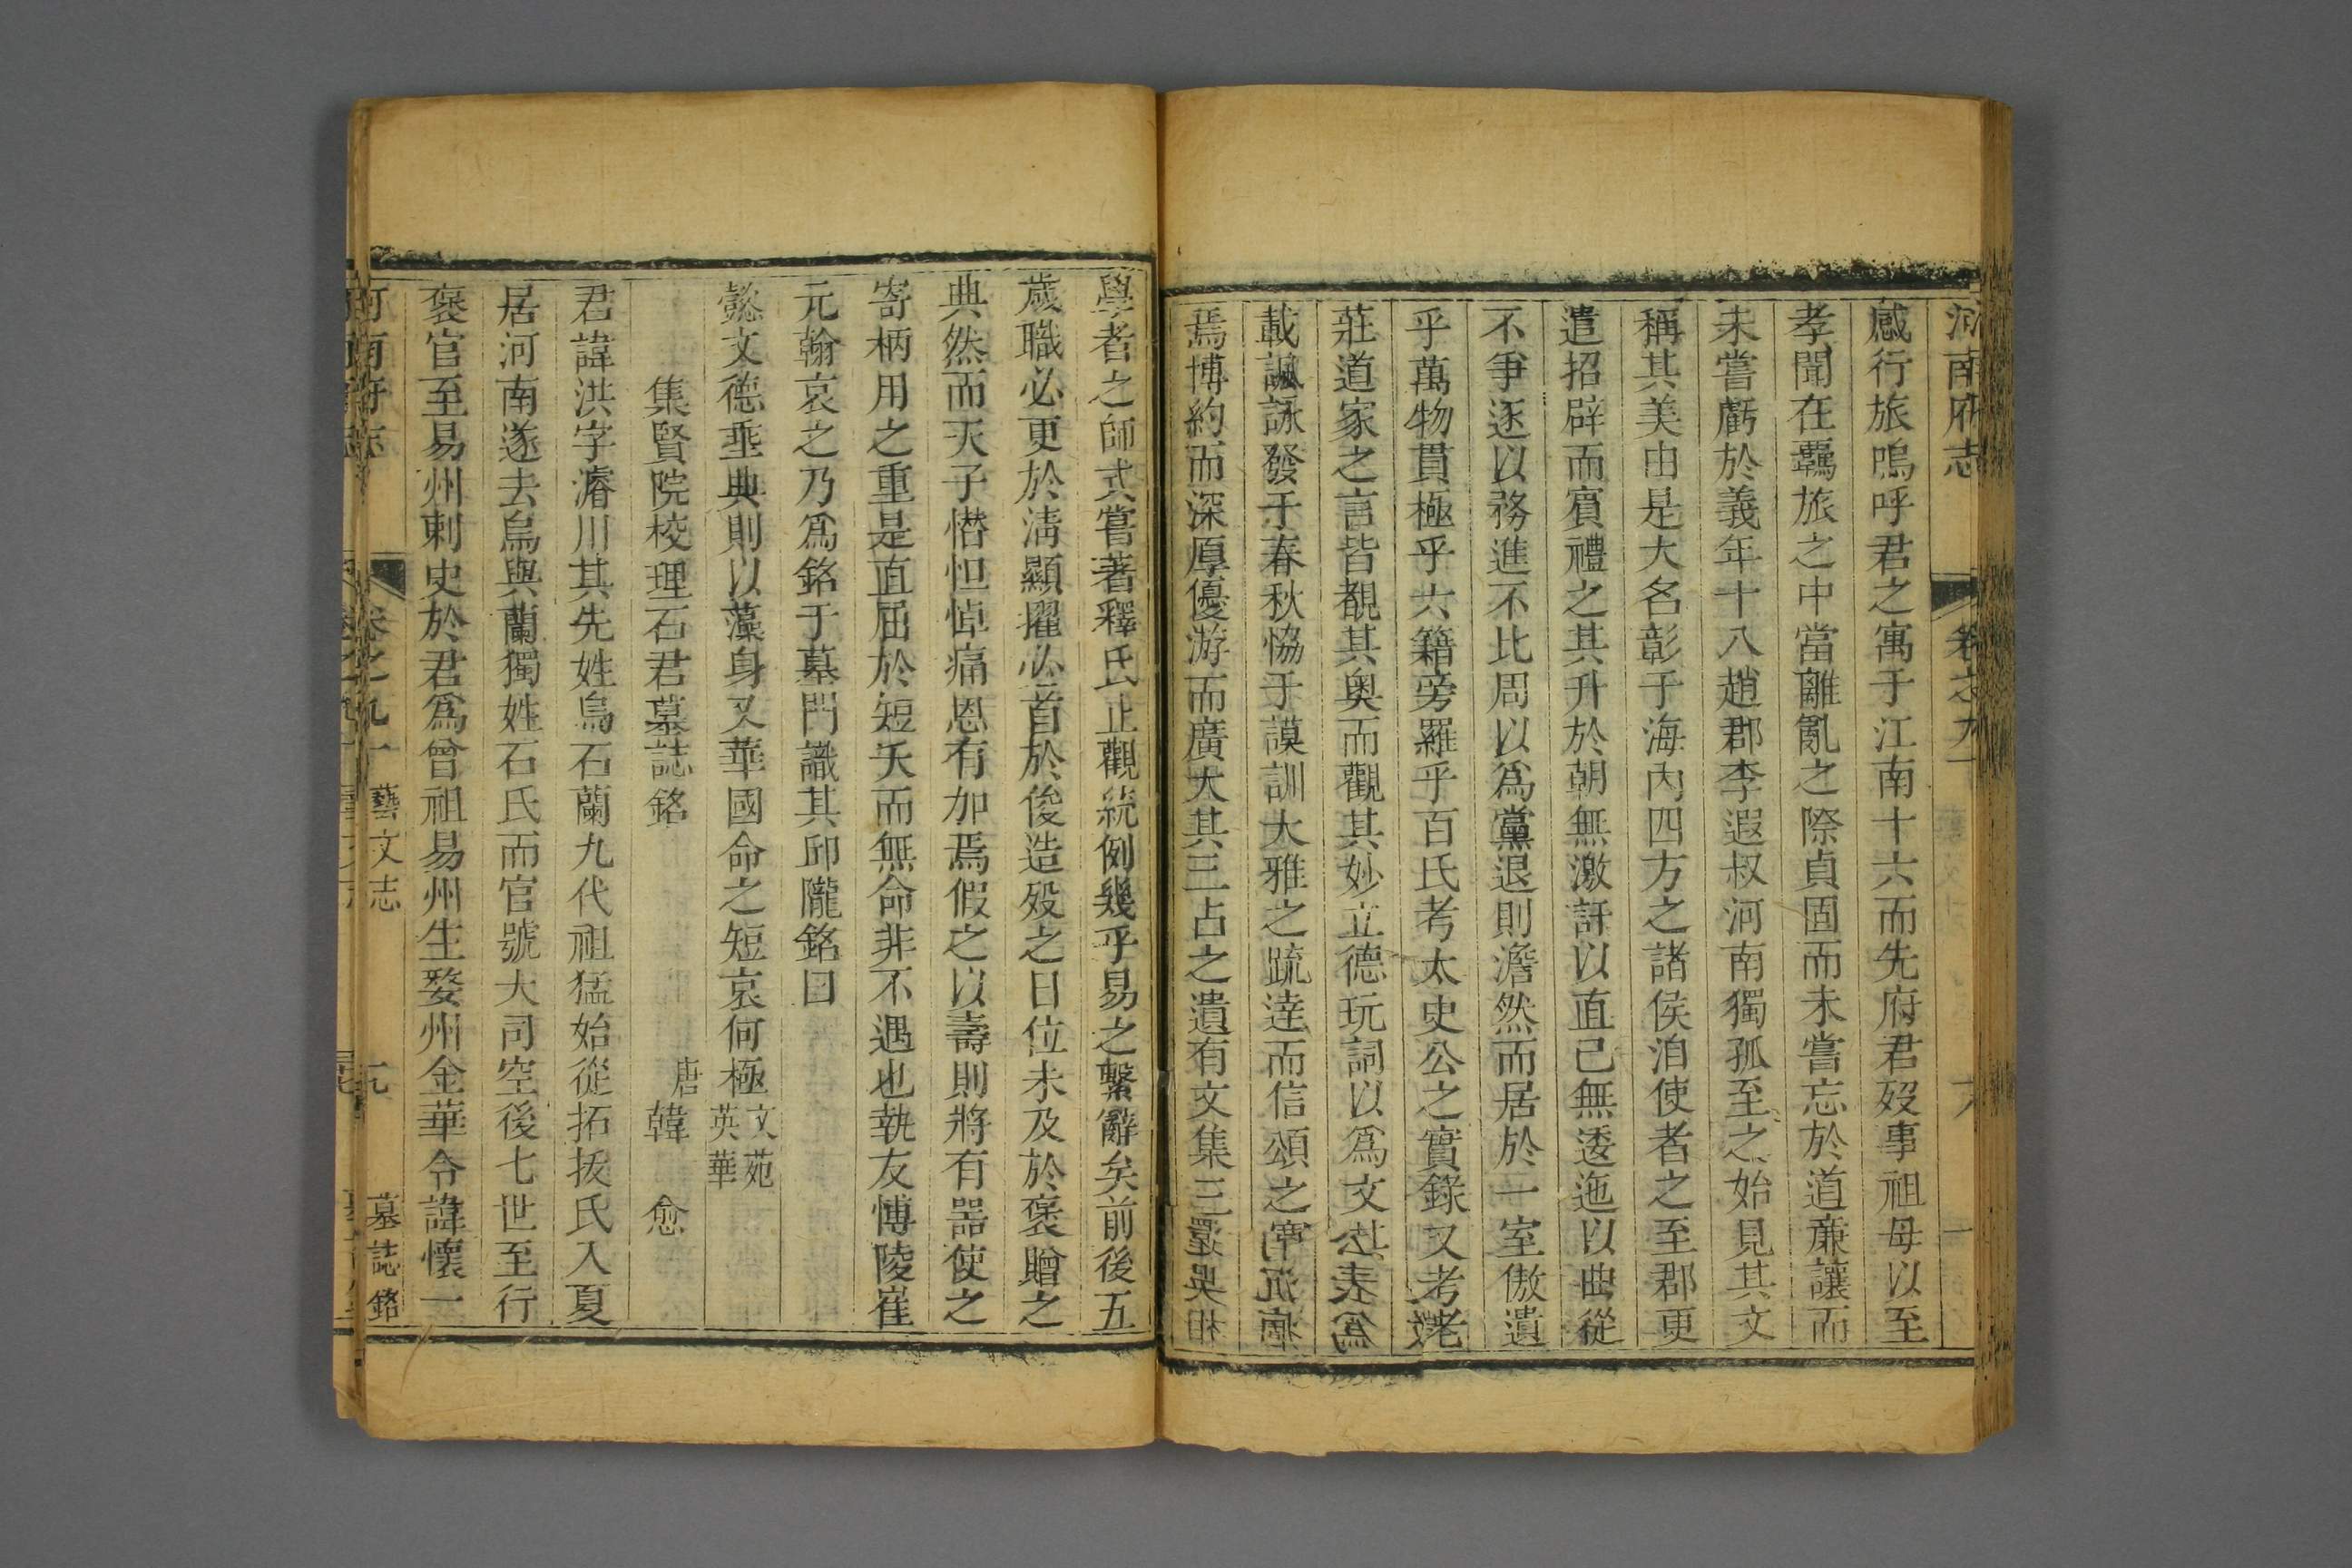 河南府志 卷之九十一
感行旅嗚呼君之寓于江南十六而先府君歿事祖母以至
孝聞在羈旅之中當離亂之際貞固而未嘗忘於道廉讓而
未嘗虧於義年十八趙郡李遐叔河南獨孤至之始見其文
稱其美由是大名彰于海內四方之諸侯洎使者之至郡更
遣招辟而賓禮之其升於朝無激訐以直己無逶迤以曲從
不爭逐以務進不比周以爲黨退則澹然而居於一室傲遺
乎萬物貫極乎六籍旁羅乎百氏考太史公之實錄又考老
莊道家之言皆覩其奧而觀其妙立德玩詞以爲文
載諷詠發于春秋恊于謨訓大雅之疏達而信頌之
焉博約而深厚優游而廣大其三占之遺有文集三
學者之師式嘗著釋氏止觀統例幾乎易之繫辭矣前後五
歲職必更於淸顯擢必首於俊造歿之日位未及於褒贈之
典然而天子憯怛悼痛恩有加焉假之以壽則將有噐使之
寄柄用之重是直屈於短夭而無命非不遇也執友博陵崔
元翰哀之乃爲銘于墓門識其邱隴銘曰
懿文德垂典則以藻身又華國命之短哀何極 文苑英華
集賢院校理石君墓誌銘 唐 韓 愈
君諱洪字濬川其先姓烏石蘭九代祖猛始從拓拔氏入夏
居河南遂去烏與蘭獨姓石氏而官號大司空後七世至行
褒官至易州刺史於君爲曾祖易州生婺州金華令諱懷一
河南府志 卷之九十一 藝文志 墓誌銘